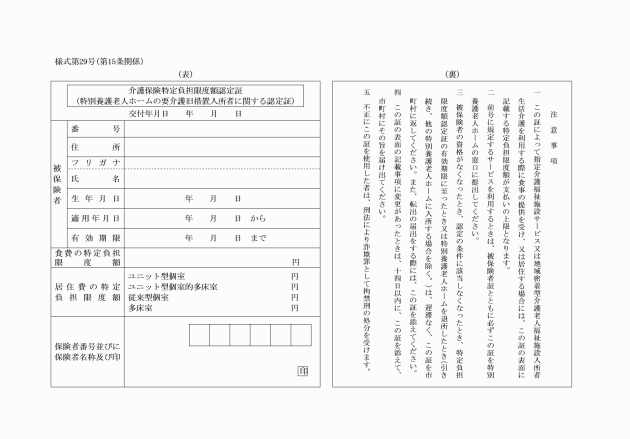 様式第29号(第15条関係)
(表)
介護保険特定負担限度額認定証
(特別養護老人ホームの要介護旧措置入所者に関する認定証)
交付年月日 年 月 日
被保険者
番号
住所
フリガナ
氏名
生年月日 年 月 日
適用年月日 年 月 日 から
有効期限 年 月 日 まで
食費の特定負担
限度額 円
居住費の特定
負担限度額
ユニット型個室 円
ユニット型個室的多床室 円
従来型個室 円
多床室 円
保険者番号並びに
保険者名称及び印
印
(裏)
注意事項
一 この証によって指定介護福祉施設サービス又は地域密着型介護老人福祉施設入所者
生活介護を利用する際に食事の提供を受け、又は居住する場合には、この証の表面に
記載する特定負担限度額が支払いの上限となります。
二 前号に規定するサービスを利用するときは、被保険者証とともに必ずこの証を特別
養護老人ホームの窓口に提出してください。
三 被保険者の資格がなくなったとき、認定の条件に該当しなくなったとき、特定負担
限度額認定証の有効期限に至ったとき又は特別養護老人ホームを退所したとき(引き
続き、他の特別養護老人ホームに入所する場合を除く。)は、遅滞なく、この証を市
町村に返してください。また、転出の届出をする際には、この証を添えてください。
四 この証の表面の記載事項に変更があったときは、十四日以内に、この証を添えて、
市町村にその旨を届け出てください。
五 不正にこの証を使用した者は、刑法により詐欺罪として拘禁刑の処分を受けます。